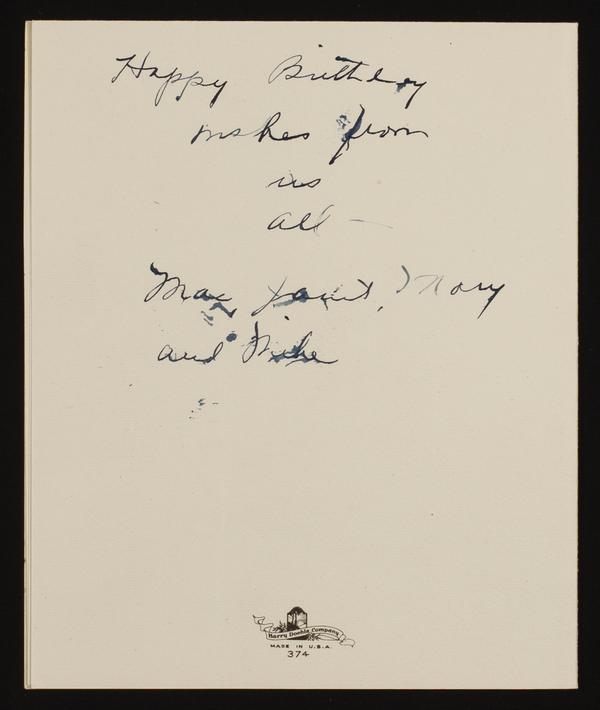 Happy Birthday
wishes from
us
all —
Mac, Janet, Mary
and Mike
Harry Doehla Company
MADE IN U.S.A.
374